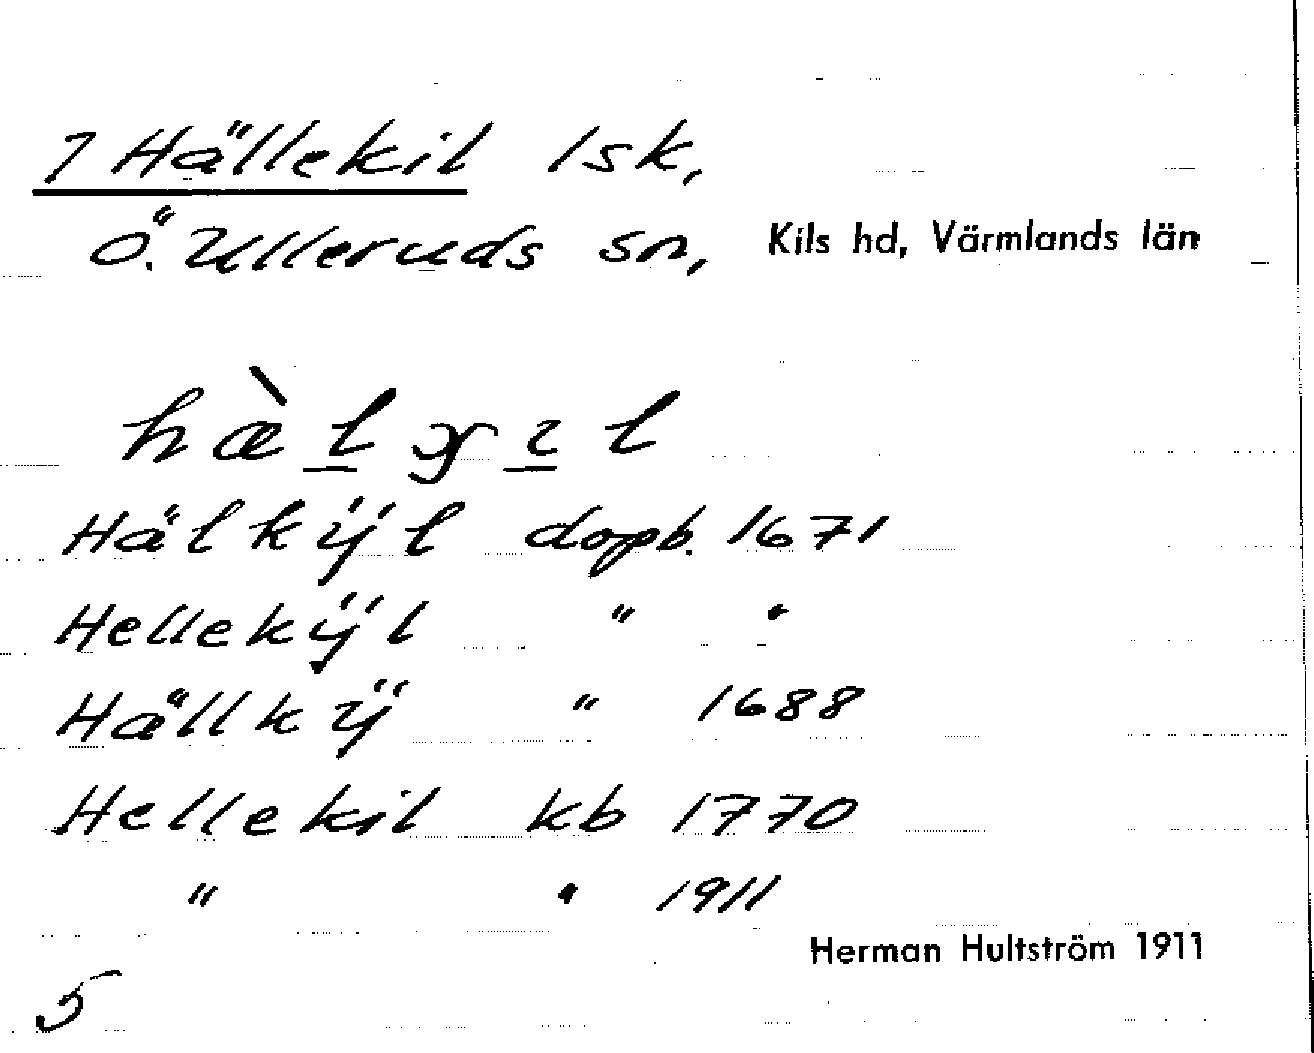 7 Hällekil lsk,
Ö. Ulleruds sn, Kils hd, Värmlands län
Hälkÿl dopb. 1671
Hellekÿl " "
Hällkÿ " 1688
Hellekil kb 1770
" " 1911
Herman Hultström 1911
5